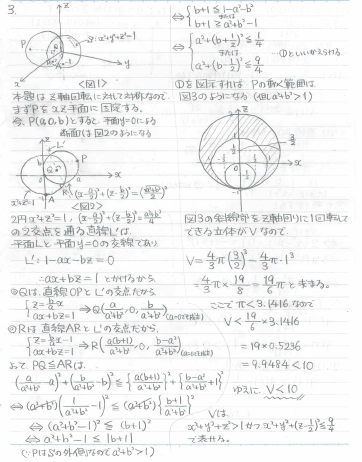 3.
z
P
Q
O
y
x
x²+y²+z²=1
<図1>
本題は z軸回転に対して対称なので、
まずPを xz平面に固定する。
今、P(a,0,b)とすると、平面y=0による
断面は図2のようになる
z
L'
P
b
Q
a
x
R
A
x²+z²=1
(x-a/2)²+(z-b/2)²=
<図2>
2円x²+z²=1, (x-a/2)²+(z-b/2)²=(a²+b²)/4
の2交点を通る直線L'は、
平面Lと平面y=0の交線であり
L': 1-ax-bz=0
∴ax+bz=1 とかけるから
◎Qは、直線OPとL'の交点だから
{z=(b/a)x
ax+bz=1 ⇒ Q(a/(a²+b²), 0, b/(a²+b²)) (a=0でも成立)
◎Rは直線ARとL'の交点だから、
ax+bz=1 ⇒ R(a(b+1)/(a²+b²), 0, (b-a²)/(a²+b²)) (a=0でも成立)
よって、PQ≦ARは、
(a/(a²+b²)-a)²+(b/(a²+b²)-b)²≦{a(b+1)/(a²+b²)}²+{(b-a²)/(a²+b²)+1}²
⇔(a²+b²)(1/(a²+b²)-1)²≦(a²+b²){(b+1)/(a²+b²)}²
⇔(a²+b²-1)²≦(b+1)²
⇔a²+b²-1≦|b+1|
(∵PはSの外側なのでa²+b²>1)
⇔{b+1≦1-a²-b²
または
b+1≧a²+b²-1
⇔{a²+(b+1/2)²≦1/4
または …①といいかえられる
a²+(b-1/2)²≦9/4
①を図示すれば Pの動く範囲は
図3のようになる(但しa²+b²>1)
z
3/2
x
<図3>
図3の斜線部をz軸周りに1回転して
できる立体がVなので、
V=(4/3)π(3/2)³-(4/3)π・1³
=(4/3)π×19/8=(19/6)πと求まる。
ここでπ<3.1416なので
V<19/6×3.1416
=19×0.5236
=9.9484<10
ゆえに V<10
Vは
x²+y²+z²>1かつx²+y²+(z-1/2)²≦9/4
で表せる。